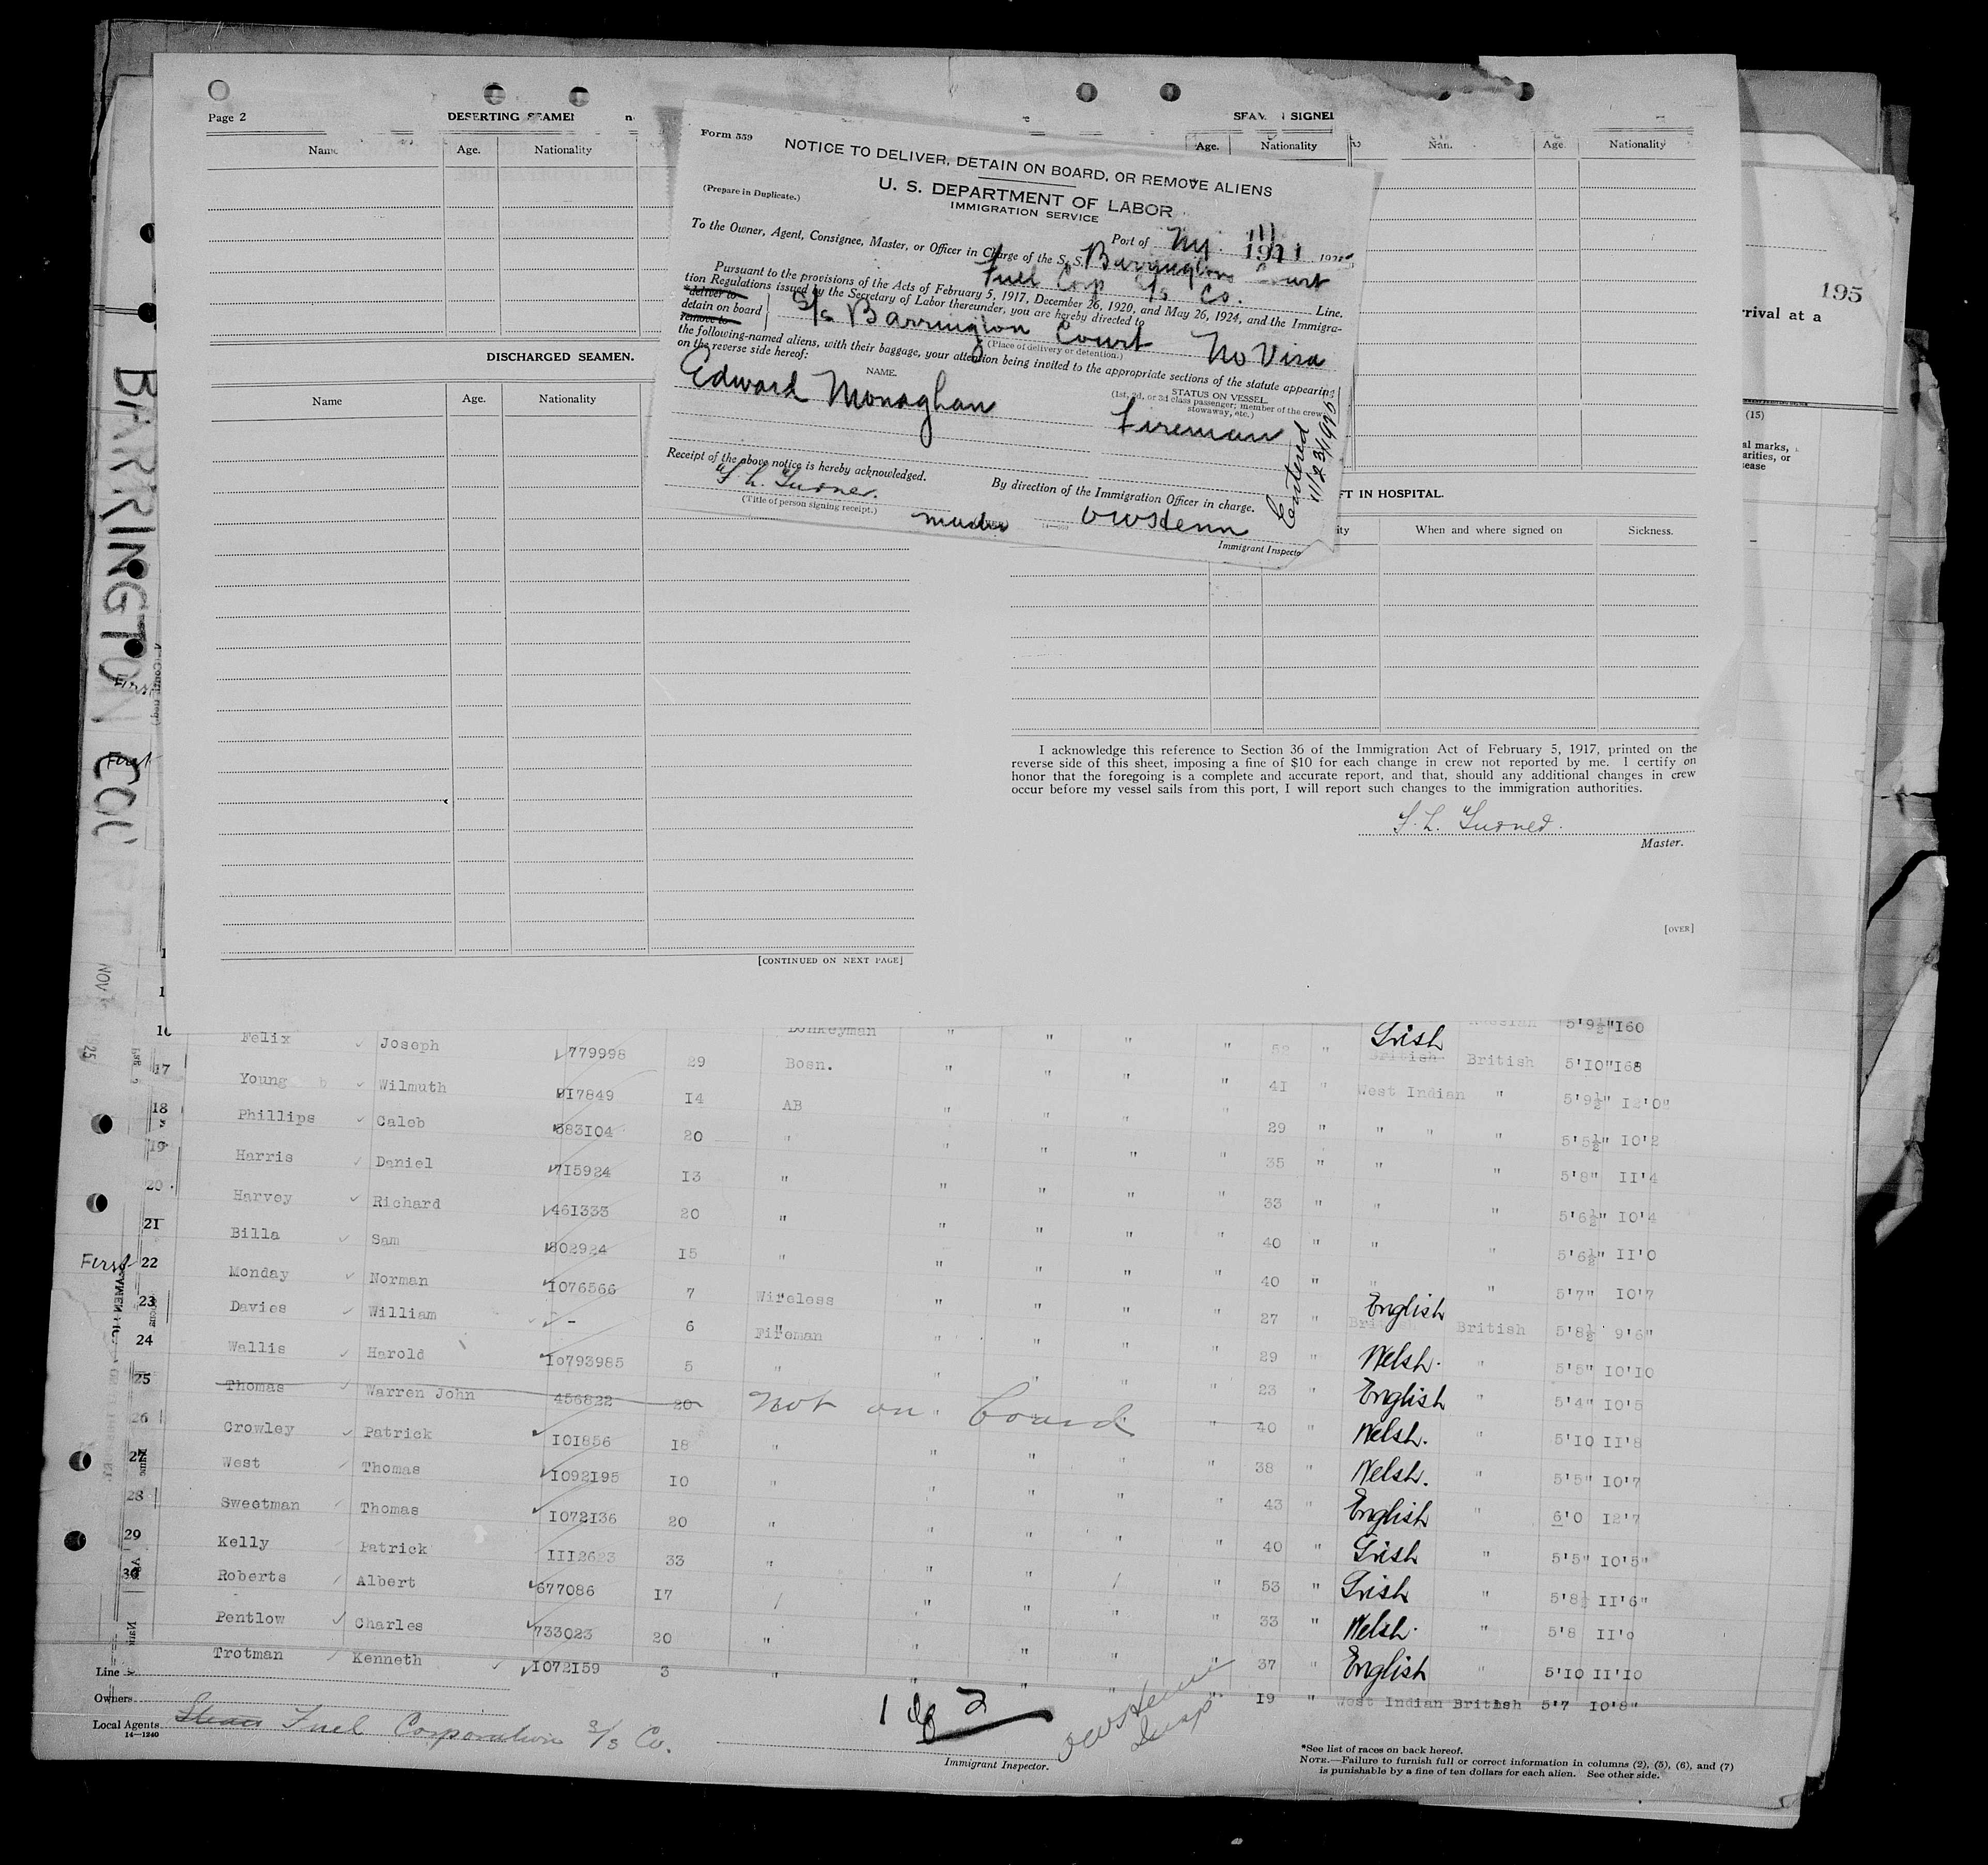 Page 2
DESERTING SEAMEN
Name Age. Nationality
SEAMEN SIGNED
Age. Nationality Name Age. Nationality
Form 559
NOTICE TO DELIVER, DETAIN ON BOARD, OR REMOVE ALIENS
(Prepare in Duplicate.)
U. S. DEPARTMENT OF LABOR
IMMIGRATION SERVICE
Port of NY.
To the Owner, Agent, Consignee, Master, or Officer in Charge of the S. S. Barrington Court
Fuel Corp S/S Co. Line.
Pursuant to the provisions of the Acts of February 5, 1917, December 26, 1920, and May 26, 1924, and the Immigra-
tion Regulations issued by the Secretary of Labor thereunder, you are hereby directed to
*deliver to
detain on board
remove to
S/S Barrington Court No Visa
(Place of delivery or detention.)
the following-named aliens, with their baggage, your attention being invited to the appropriate sections of the statute appearing
on the reverse side hereof:
NAME.
STATUS ON VESSEL
(1st, 2d, or 3d class passenger; member of the crew
stowaway, etc.)
Edward Monaghan Fireman
Entered
Receipt of the above notice is hereby acknowledged.
F. L. Turner.
(Title of person signing receipt.)
master
By direction of the Immigration Officer in charge.
Immigrant Inspector
DISCHARGED SEAMEN.
Name Age. Nationality
FT IN HOSPITAL.
ity When and where signed on Sickness.
I acknowledge this reference to Section 36 of the Immigration Act of February 5, 1917, printed on the
reverse side of this sheet, imposing a fine of $10 for each change in crew not reported by me. I certify on
honor that the foregoing is a complete and accurate report, and that, should any additional changes in crew
occur before my vessel sails from this port, I will report such changes to the immigration authorities.
F. L. Turner.
Master.
[OVER]
[CONTINUED ON NEXT PAGE]
195
rrival at a
(15)
al marks,
arities, or
sease
BARRINGTON COURT
NOV
25
First
First
First
Donkeyman " " 5'9½" 160
16 Felix Joseph 779998 29 Bosn. " " " 52 " Irish British British 5'10" 168
17 Young Wilmuth 917849 14 AB " " " 41 " West Indian " 5'9½" 12'0"
18 Phillips Caleb 383104 20 " " " " 29 " " " " 5'5½" 10'2
19 Harris Daniel 715924 13 " " " " 35 " " " 5'8" 11'4
20 Harvey Richard 461333 20 " " " " 33 " " " 5'6½" 10'4
21 Billa Sam 802924 15 " " " " 40 " " " 5'6½" 11'0
22 Monday Norman 1076566 7 " " " " 40 " " " 5'7" 10'7
23 Davies William - 6 Wireless " " " 27 " English British 5'8½ 9'6"
24 Wallis Harold 10793985 5 Fireman " " " 29 " Welsh. " 5'5" 10'10
25 Thomas Warren John 456822 20 not on board 23 English " 5'4" 10'5
26 Crowley Patrick 101856 18 " " " " 40 Welsh. " 5'10 11'8
27 West Thomas 1092195 10 " " " " 38 " Welsh. " 5'5" 10'7
28 Sweetman Thomas 1072136 20 " " " " 43 " English " 6'0 12'7
29 Kelly Patrick 1112623 33 " " " " 40 " Irish " 5'5" 10'5"
30 Roberts Albert 677086 17 " " " 53 " Irish " 5'8½ 11'6"
Pentlow Charles 733023 20 " " " " 33 " Welsh. " 5'8 11'9
Trotman Kenneth 1072159 3 " " " " 37 " English " 5'10 11'10
19 " West Indian British 5'7 10'8"
Line
Owners
Local Agents Fuel Corporation S/S Co.
14—1240
Immigrant Inspector.
*See list of races on back hereof.
NOTE.—Failure to furnish full or correct information in columns (2), (5), (6), and (7)
is punishable by a fine of ten dollars for each alien. See other side.